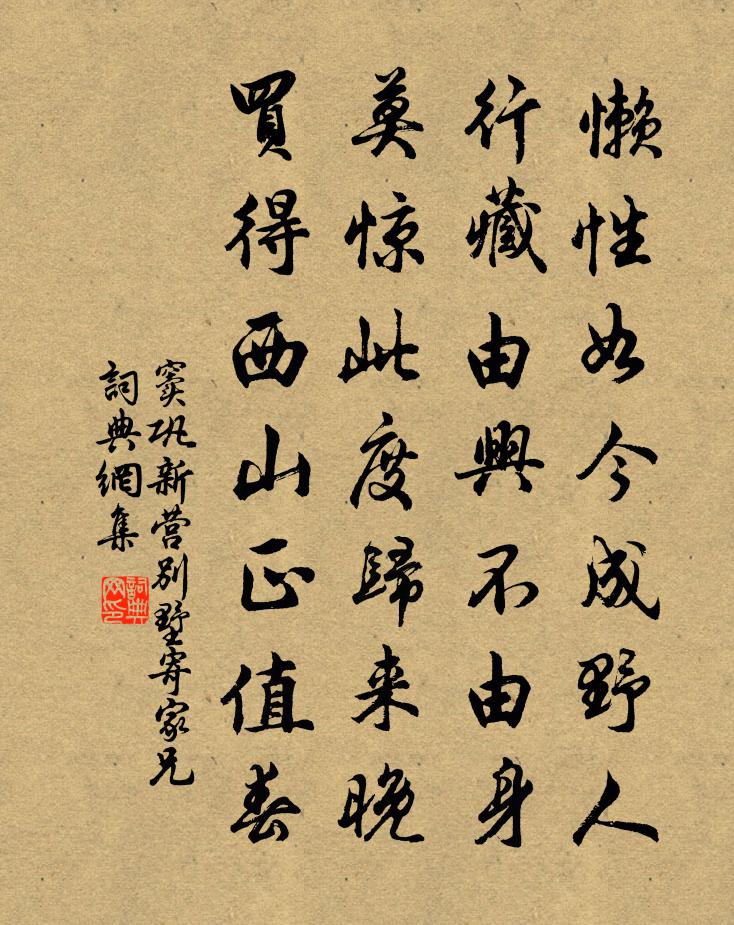 懒性如今成野人
行藏由興不由身
莫惊此度歸来晚
買得西山正值春
窦巩新营别墅寄家兄
詞典網集
詞典网印